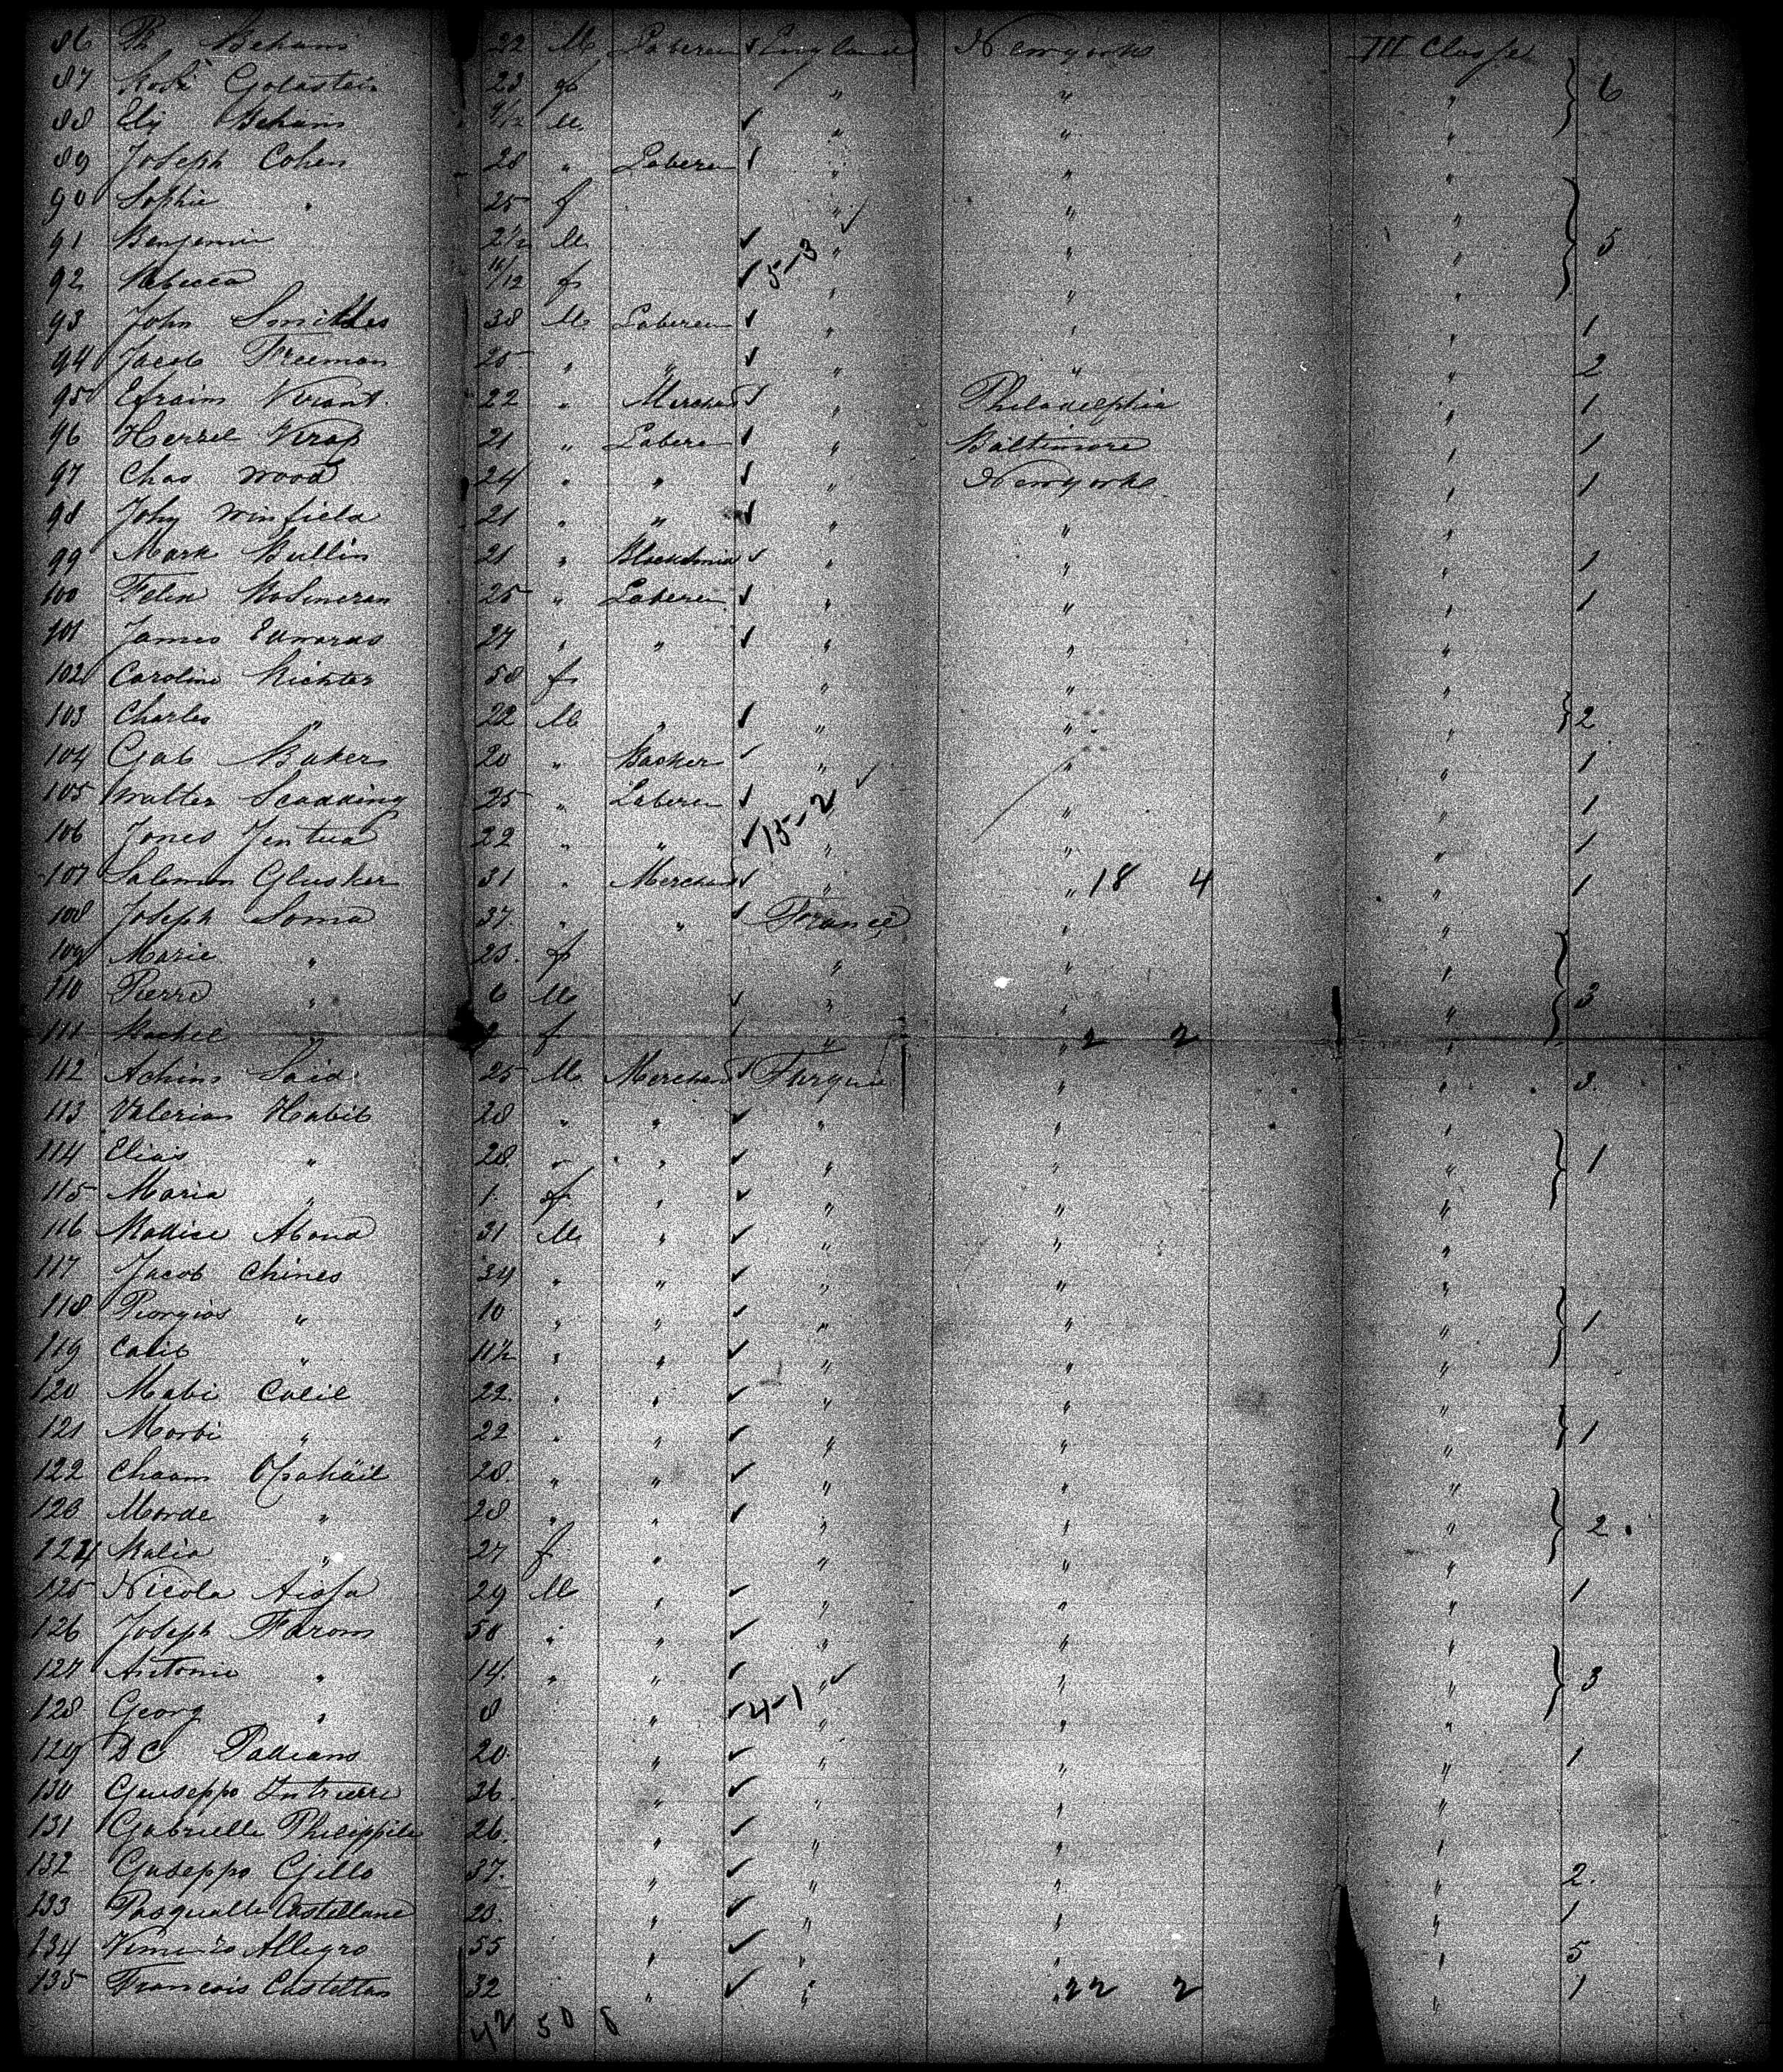 86 Ph. Behani 22 M Laberer England Newyork III Classe
87 Rosi Golastein 23 f " " " 6
88 Ely Behani 9/12 M " " "
89 Joseph Cohen 28 " Laberer " " "
90 Sophie " 25 f " " "
91 Benjamin 2 1/2 M " " " 5
92 Rebecca 11/12 f 5-3 " " "
93 John 38 M Laberer " " " 1
94 Jacob Freeman 25 " " " " " 2
95 Efraim 22 " Merchand " Philadelphia " 1
96 Herzel 21 " Laberer " Baltimore " 1
97 Chas Wood 24 " " " Newyork " 1
98 John Winfield 21 " " " " "
99 Mark Bullin 21 " Blacksmid " " " 1
100 Felix 25 " Laberer " " " 1
101 James Edwards 27 " " " " "
102 Caroline Richter 58 f " " "
103 Charles " 22 M " " " " 2
104 Gab Baker 20 " Backer " " " 1
105 Walter Scadding 25 " Laberer " " " 1
106 Jones 22 " " 15-2 " " " 1
107 Salomon Glusker 31 " Merchand " " 18 4 " 1
108 Joseph Soma 37 " " France " "
109 Marie " 23 f " " "
110 Pierre " 6 M " " " 3
111 Rachel 2 f " " 2 2 "
112 Achim Said 25 M Merchand Turquie " " 3
113 Valerian Habib 28 " " " " "
114 Elias " 28 " " " " " 1
115 Maria " 1 f " " " "
116 31 M " " " "
117 Jacob Chines 34 " " " " "
118 " 10 " " " " " 1
119 Calib " 11 1/2 " " " " "
120 Mabi Calil 22 " " " " "
121 Morbi " 22 " " " " " 1
122 Chaam 28 " " " " "
123 Morde " 28 " " " " " 2
124 Malia " 27 f " " " "
125 Nicola 29 M " " " " 1
126 Joseph Farom 50 " " " " "
127 Antonio " 14 " " " " " 3
128 Georg " 8 " 4-1 " " "
129 D C 20 " " " " 1
130 Giuseppo 36 " " " "
131 Gabrielle 26 " " " "
132 Guseppo Gillo 37 " " " " 2
133 Pasqualle Castellane 23 " " " " 1
134 Allegro 55 " " " " 5
135 Francois Castellan 32 " " " 22 2 " 1
42 50 8